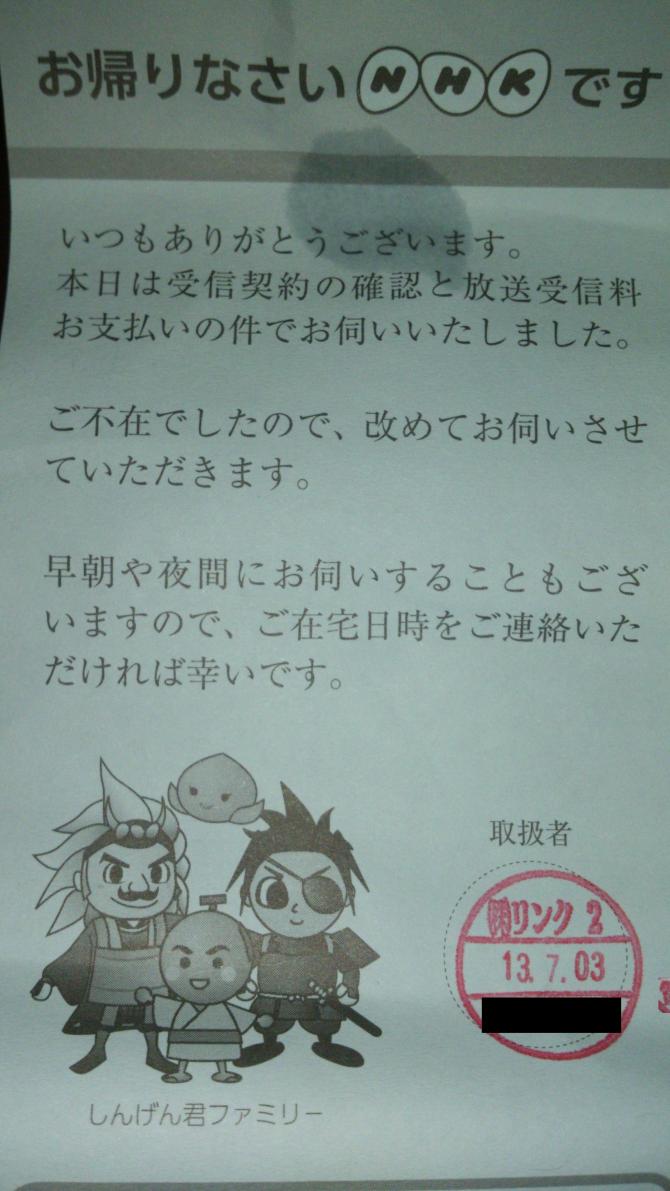 お帰りなさいNHKです
いつもありがとうございます。
本日は受信契約の確認と放送受信料
お支払いの件でお伺いいたしました。
ご不在でしたので、改めてお伺いさせ
ていただきます。
早朝や夜間にお伺いすることもござ
いますので、ご在宅日時をご連絡いた
だければ幸いです。
取扱者
㈱リンク 2
13.7.03
しんげん君ファミリー